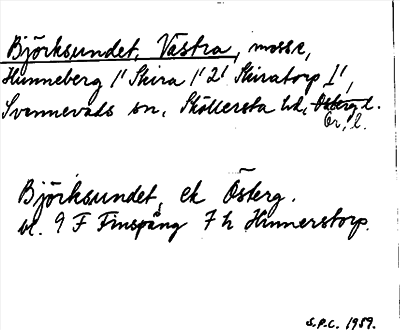 Björksundet, Västra, mosse,
Hunneberg 1¹ Skira 1¹ 2¹ Skiratorp 1¹,
Svennevads sn, Sköllersta hd, Österg. l.
Ör. l.
Björksundet, ek Österg.
bl. 9 F Finspång 7 h Hinnerstorp.
S.P.C. 1959.